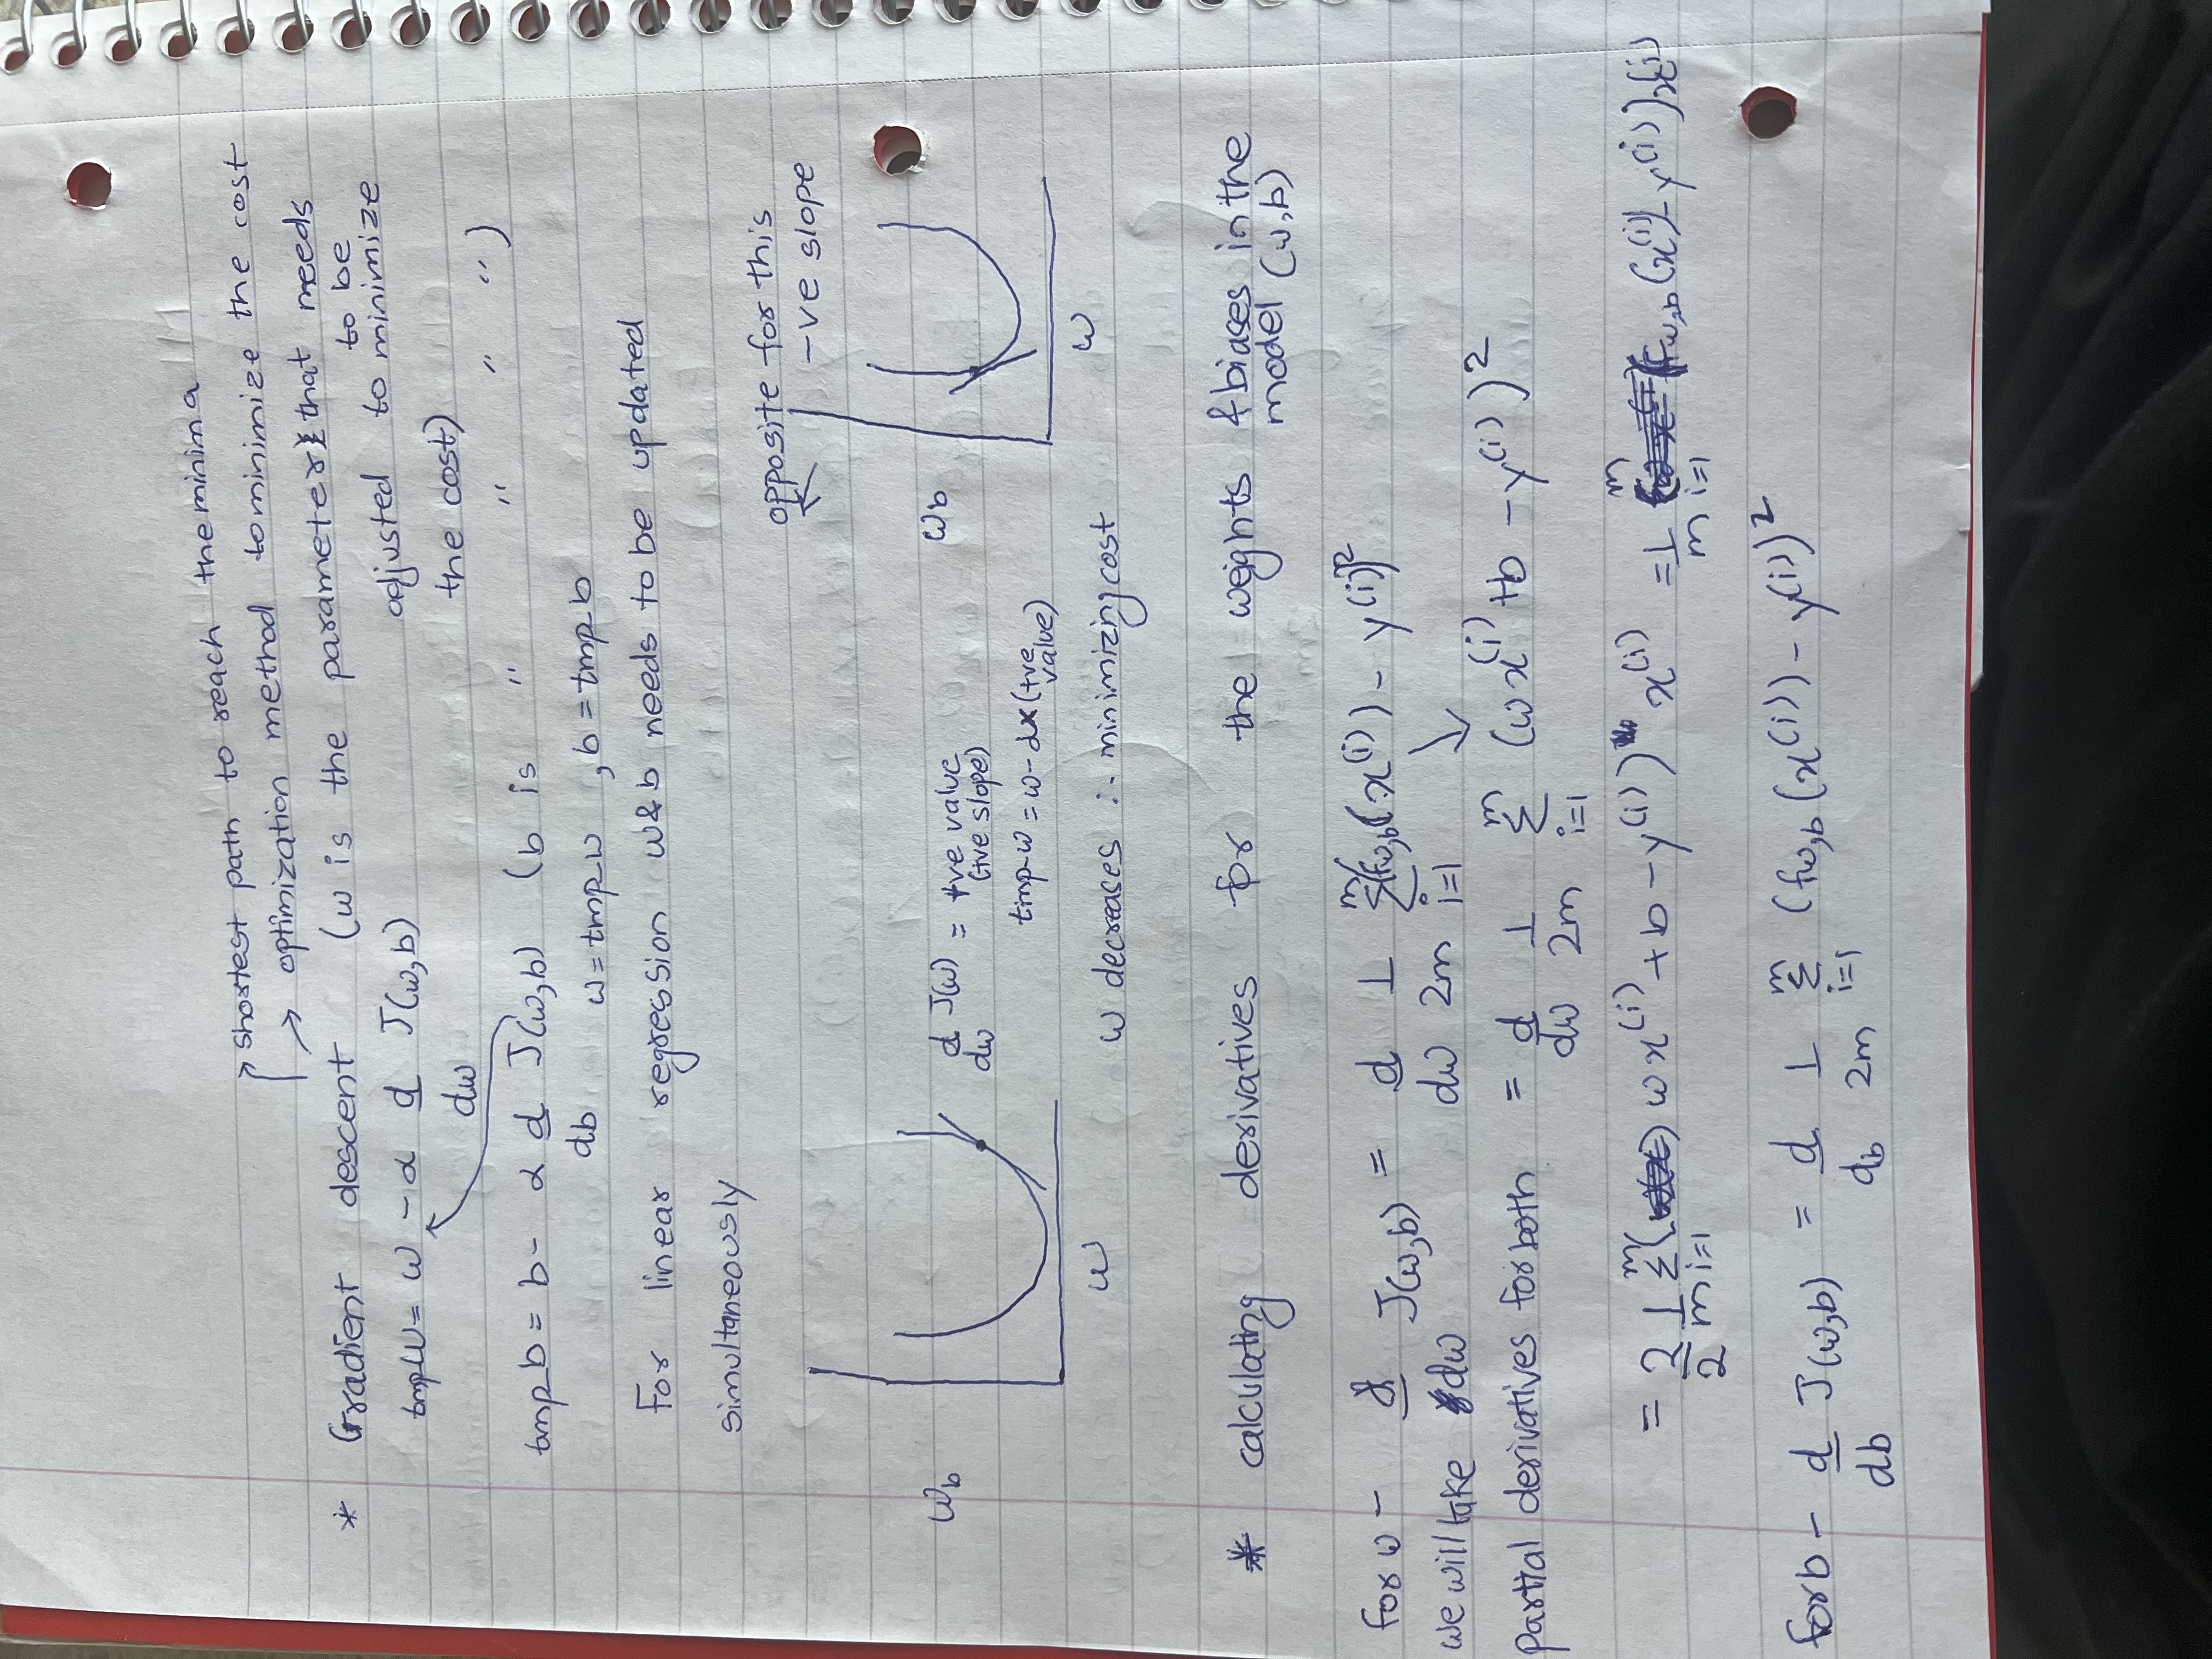 shortest path to reach the minima
→ optimization method to minimize the cost
* Gradient descent (w is the parameter that needs
to be
adjusted to minimize
tmp w = w - α d/dw J(w,b)
the cost)
tmp_b = b - α d/db J(w,b) (b is " " " ")
w = tmp_w , b = tmp_b
For linear regression w & b needs to be updated
simultaneously
opposite for this
-ve slope
wb
d/dw J(w) = +ve value
(+ve slope)
tmp-w = w - α x (+ve
value)
w
w decreases ∴ minimizing cost
wb
w
* calculating derivatives for the weights & biases in the
model (w,b)
for w - d/dw J(w,b) = d/dw 1/2m Σ_{i=1}^{m} (fw,b(x^(i)) - y^(i))^2
we will take
partial derivatives for both = d/dw 1/2m Σ_{i=1}^{m} (wx^(i) + b - y^(i))^2
= 2/2 1/m Σ_{i=1}^{m} ( wx^(i) + b - y^(i)) x^(i) = 1/m m i=1 (fw,b (x^(i)) - y^(i)) x^(i)
for b - d/db J(w,b) = d/db 1/2m Σ_{i=1}^{m} (fw,b (x^(i)) - y^(i))^2